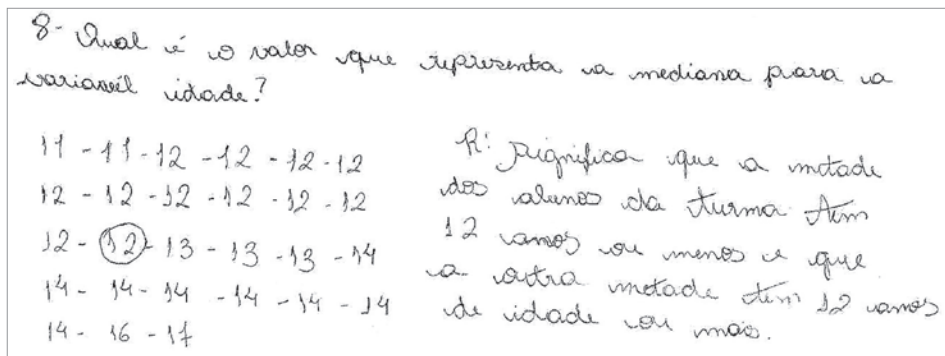 8- Qual é o valor que representa a mediana para a
variavél idade?
11 - 11 - 12 - 12 - 12 - 12
12 - 12 - 12 - 12 - 12 - 12
12 - 12 - 13 - 13 - 13 - 14
14 - 14 - 14 - 14 - 14 - 14
14 - 16 - 17
R: Significa que a metade
dos alunos da turma tem
12 anos ou menos e que
a outra metade tem 12 anos
de idade ou mais.